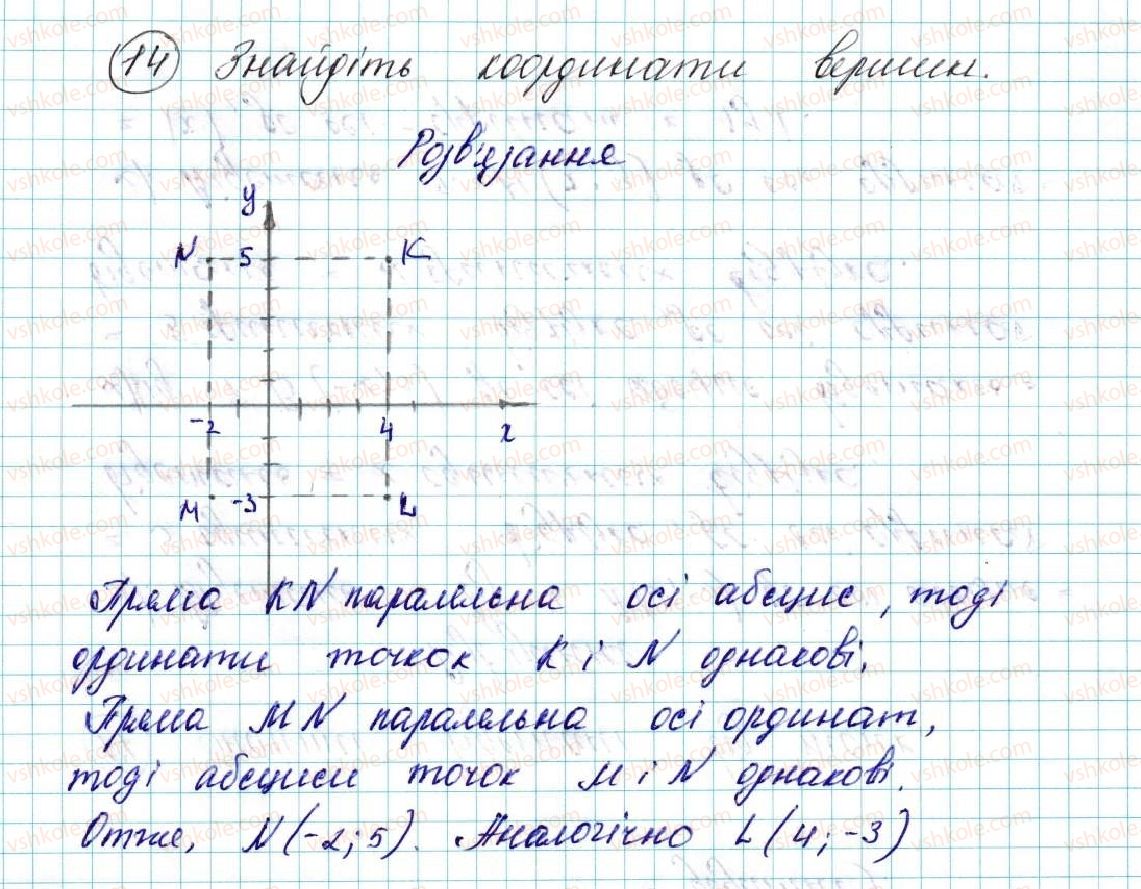 14 Знайдіть координати вершин.
Розв'язання
y
N 5 K
-2 4 x
M -3 L
Пряма KN паралельна осі абсцис, тоді
ординати точкок K і N однакові.
Пряма MN паралельна осі ординат,
тоді абсциси точок M і N однакові.
Отже, N(-2;5). Аналогічно L(4;-3)
vshkole.com